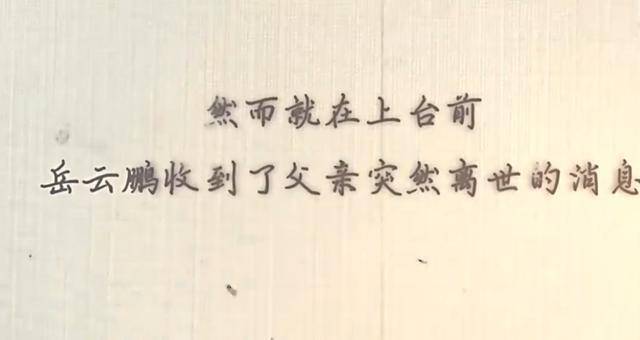 然而就在上台前
岳云鹏收到了父亲突然离世的消息